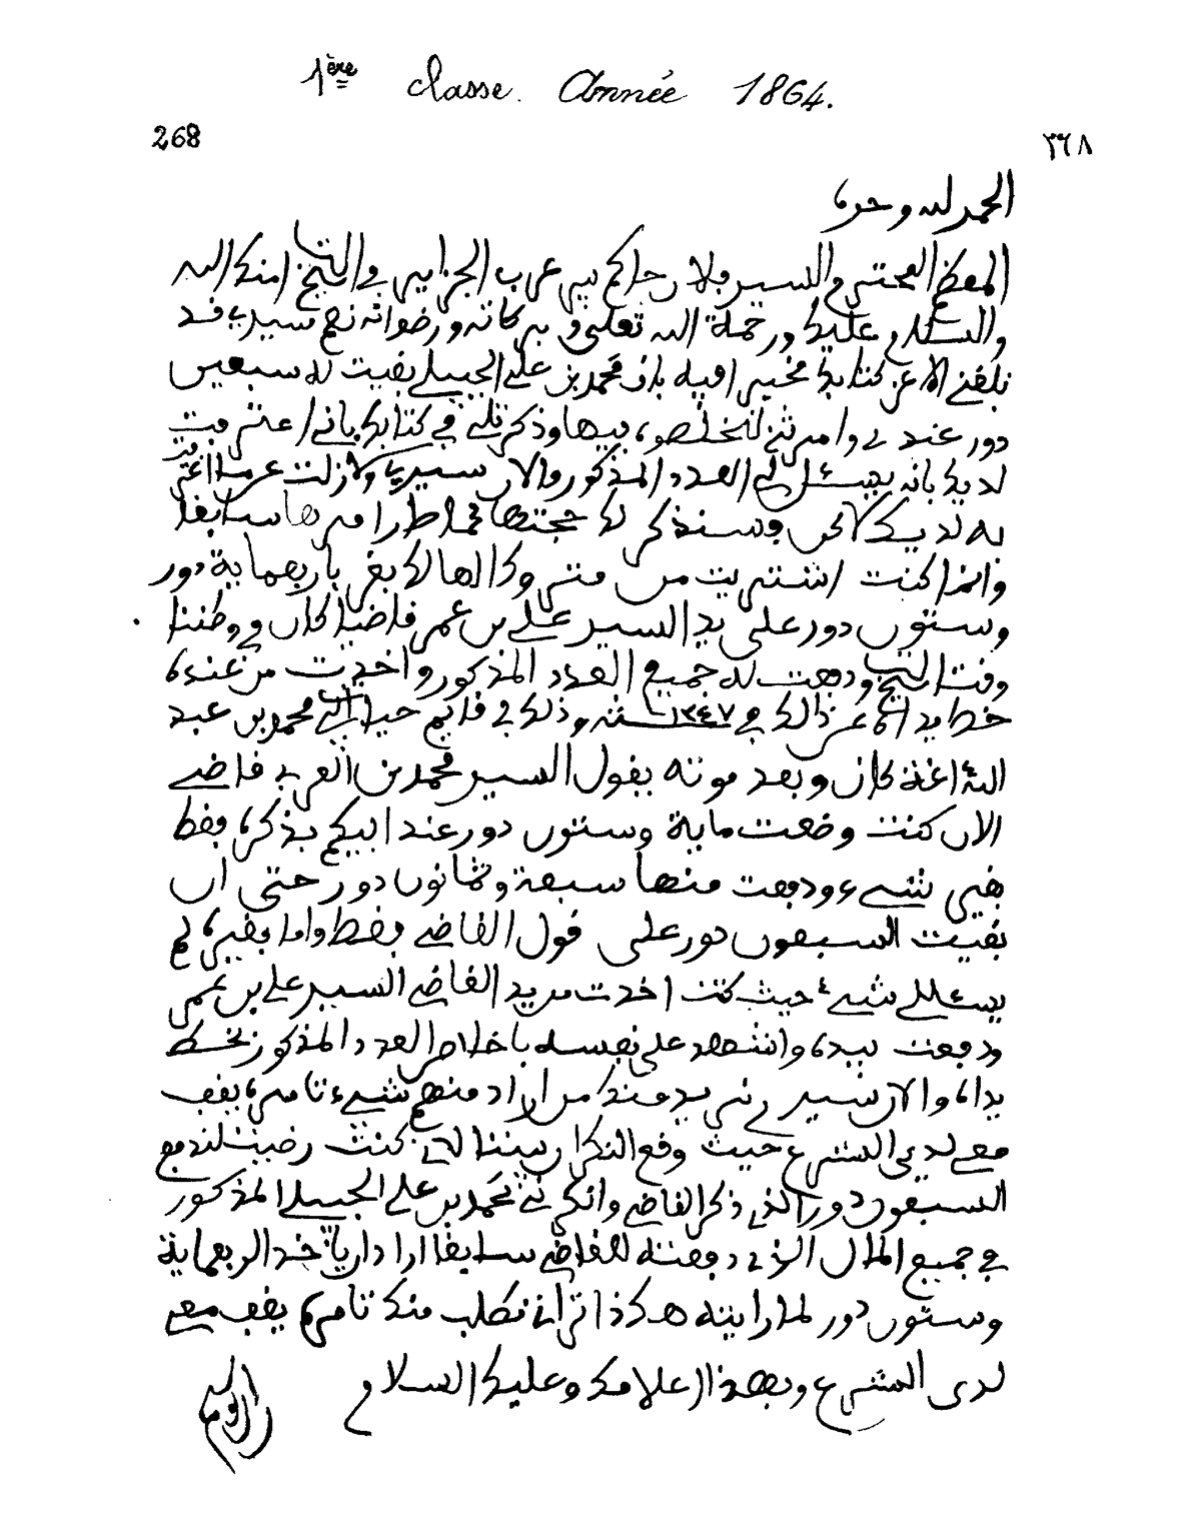 1ère classe. Année 1864.
268 ٢٦٨
الحمد لله وحده
المعظم المحترم السيد حاكم بير عرب الجزاير في التاريخ امنك الله
والسلام عليك ورحمة الله تعلى وبركاته ورضوانه نعم سيدي قد
بلغني الاعز كتابك مخبرا فيه بان محمد بن علي الجبيلي بقيت له سبعين
دور عندي وامرتني لنخلصه فيها وذكرتلي في كتابك باني اعترفت
لديك بانه يسئلني العدد المذكور والان سيدي لازلت عرما اعترفت
به لديك لاكن وسنذكر لك حجتها فما طرا امرها سابقا
وانما كنت اشتريت من متروك الهالك بقر باربعماية دور
وستون دور على يد السيد علي بن عمر قاضيا كان في وطننا
وقت التاريخ ودفعت له جميع العدد المذكور واخذت من عنده
خط يده الاعز ذالك في ١٢٤٧ سنة وذلك في قايم حياة محمد بن عبد
الله اغة كان وبعد موته يقول السيد محمد بن العربي قاضي
الان كنت وضعت ماية وستون دور عند ابيكم بذكره فقط
بقي شيء ودفعت منها سبعة وثمانون دور حتى ان
بقيت السبعون دور على قول القاضي فقط واما بقير لم
يسئلني شيء حيث كنت اخذت من يد القاضي السيد علي بن عمر
ودفعت بيده واشهد على نفسه باخلاص العدد المذكور بخط
يداه والان سيدي نريد منك من اراد منهم شيء تامره يقف
معي لدى الشرع حيث وقع النكران بيننا لاني كنت رضيت لندفع
السبعون دور الذي ذكر القاضي وانكرني محمد بن علي الجبيلي المذكور
في جميع المال الذي دفعته للقاضي سابقا اراد ياخذ الربعماية
وستون دور لما رايته هكذا تراني نطلب منك تامره يقف معي
لدى الشرع وبهذا اعلامك وعليك السلام